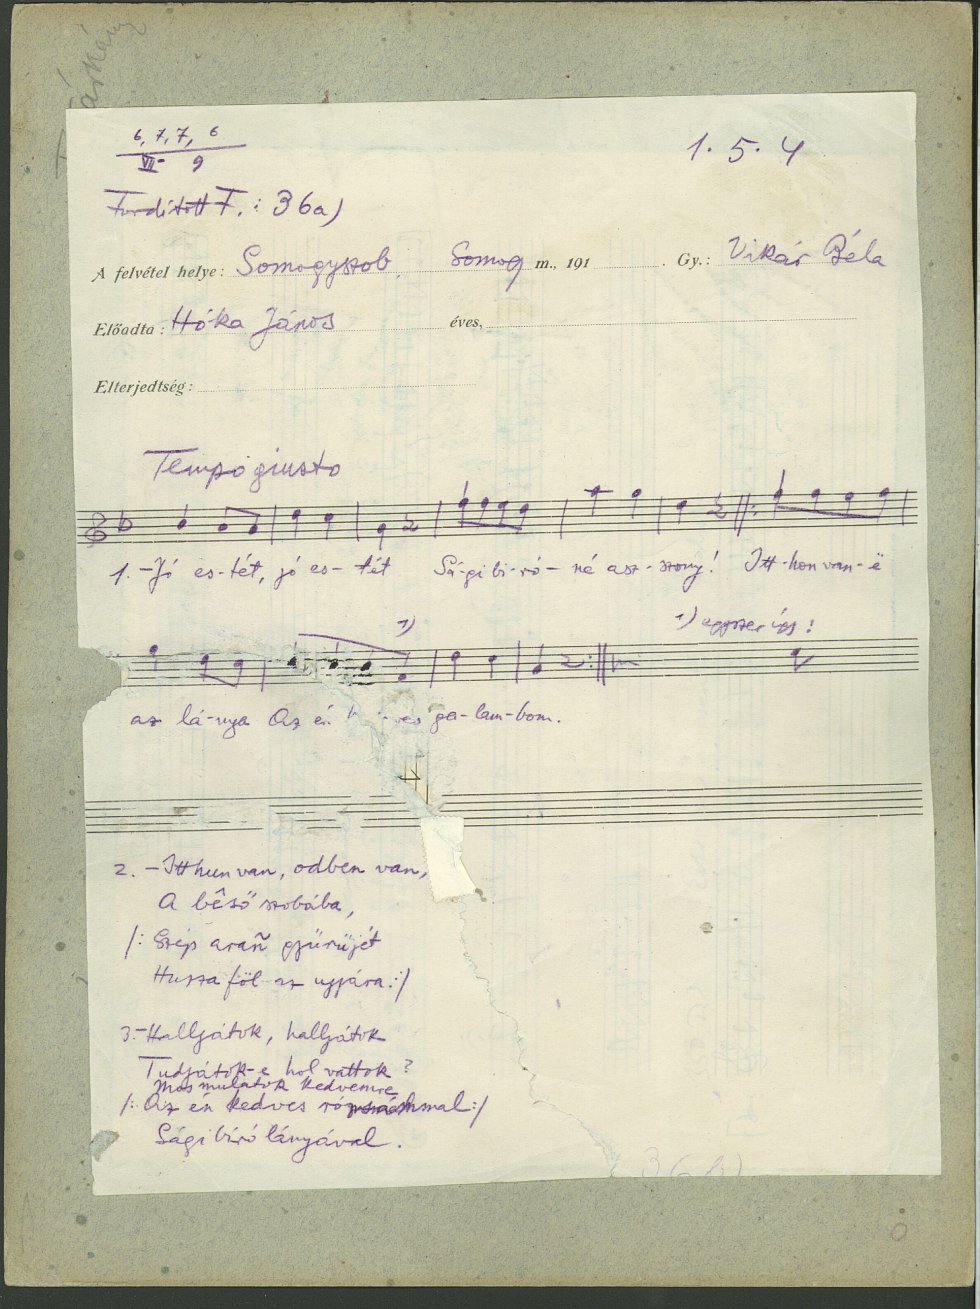 6, 7, 7, 6
VII- 9
1. 5. 4
Fordított F.: 36a)
A felvétel helye: Somogyszob, Somog m., 191 . Gy.: Vikár Béla
Előadta: Hóka János éves,
Elterjedtség:
Tempo giusto
1. - Jó es-tét, jó es-tét Sági bi-ró-né asz-szony! Itt-hon van-ë
1) 1) egyszer így!
az lá-nya Az én ves ga-lam-bom.
2. - Itthun van, odben van,
A bêső szobába,
/: Szép arañ gyűrűjét
Huzza föl az ujjára :/
3. - Halljátok, halljátok
Tudjátok-e hol vattok?
Mos mulatok kedvemre
/: Az én kedves rózsámmal :/
Sági biró lányával.